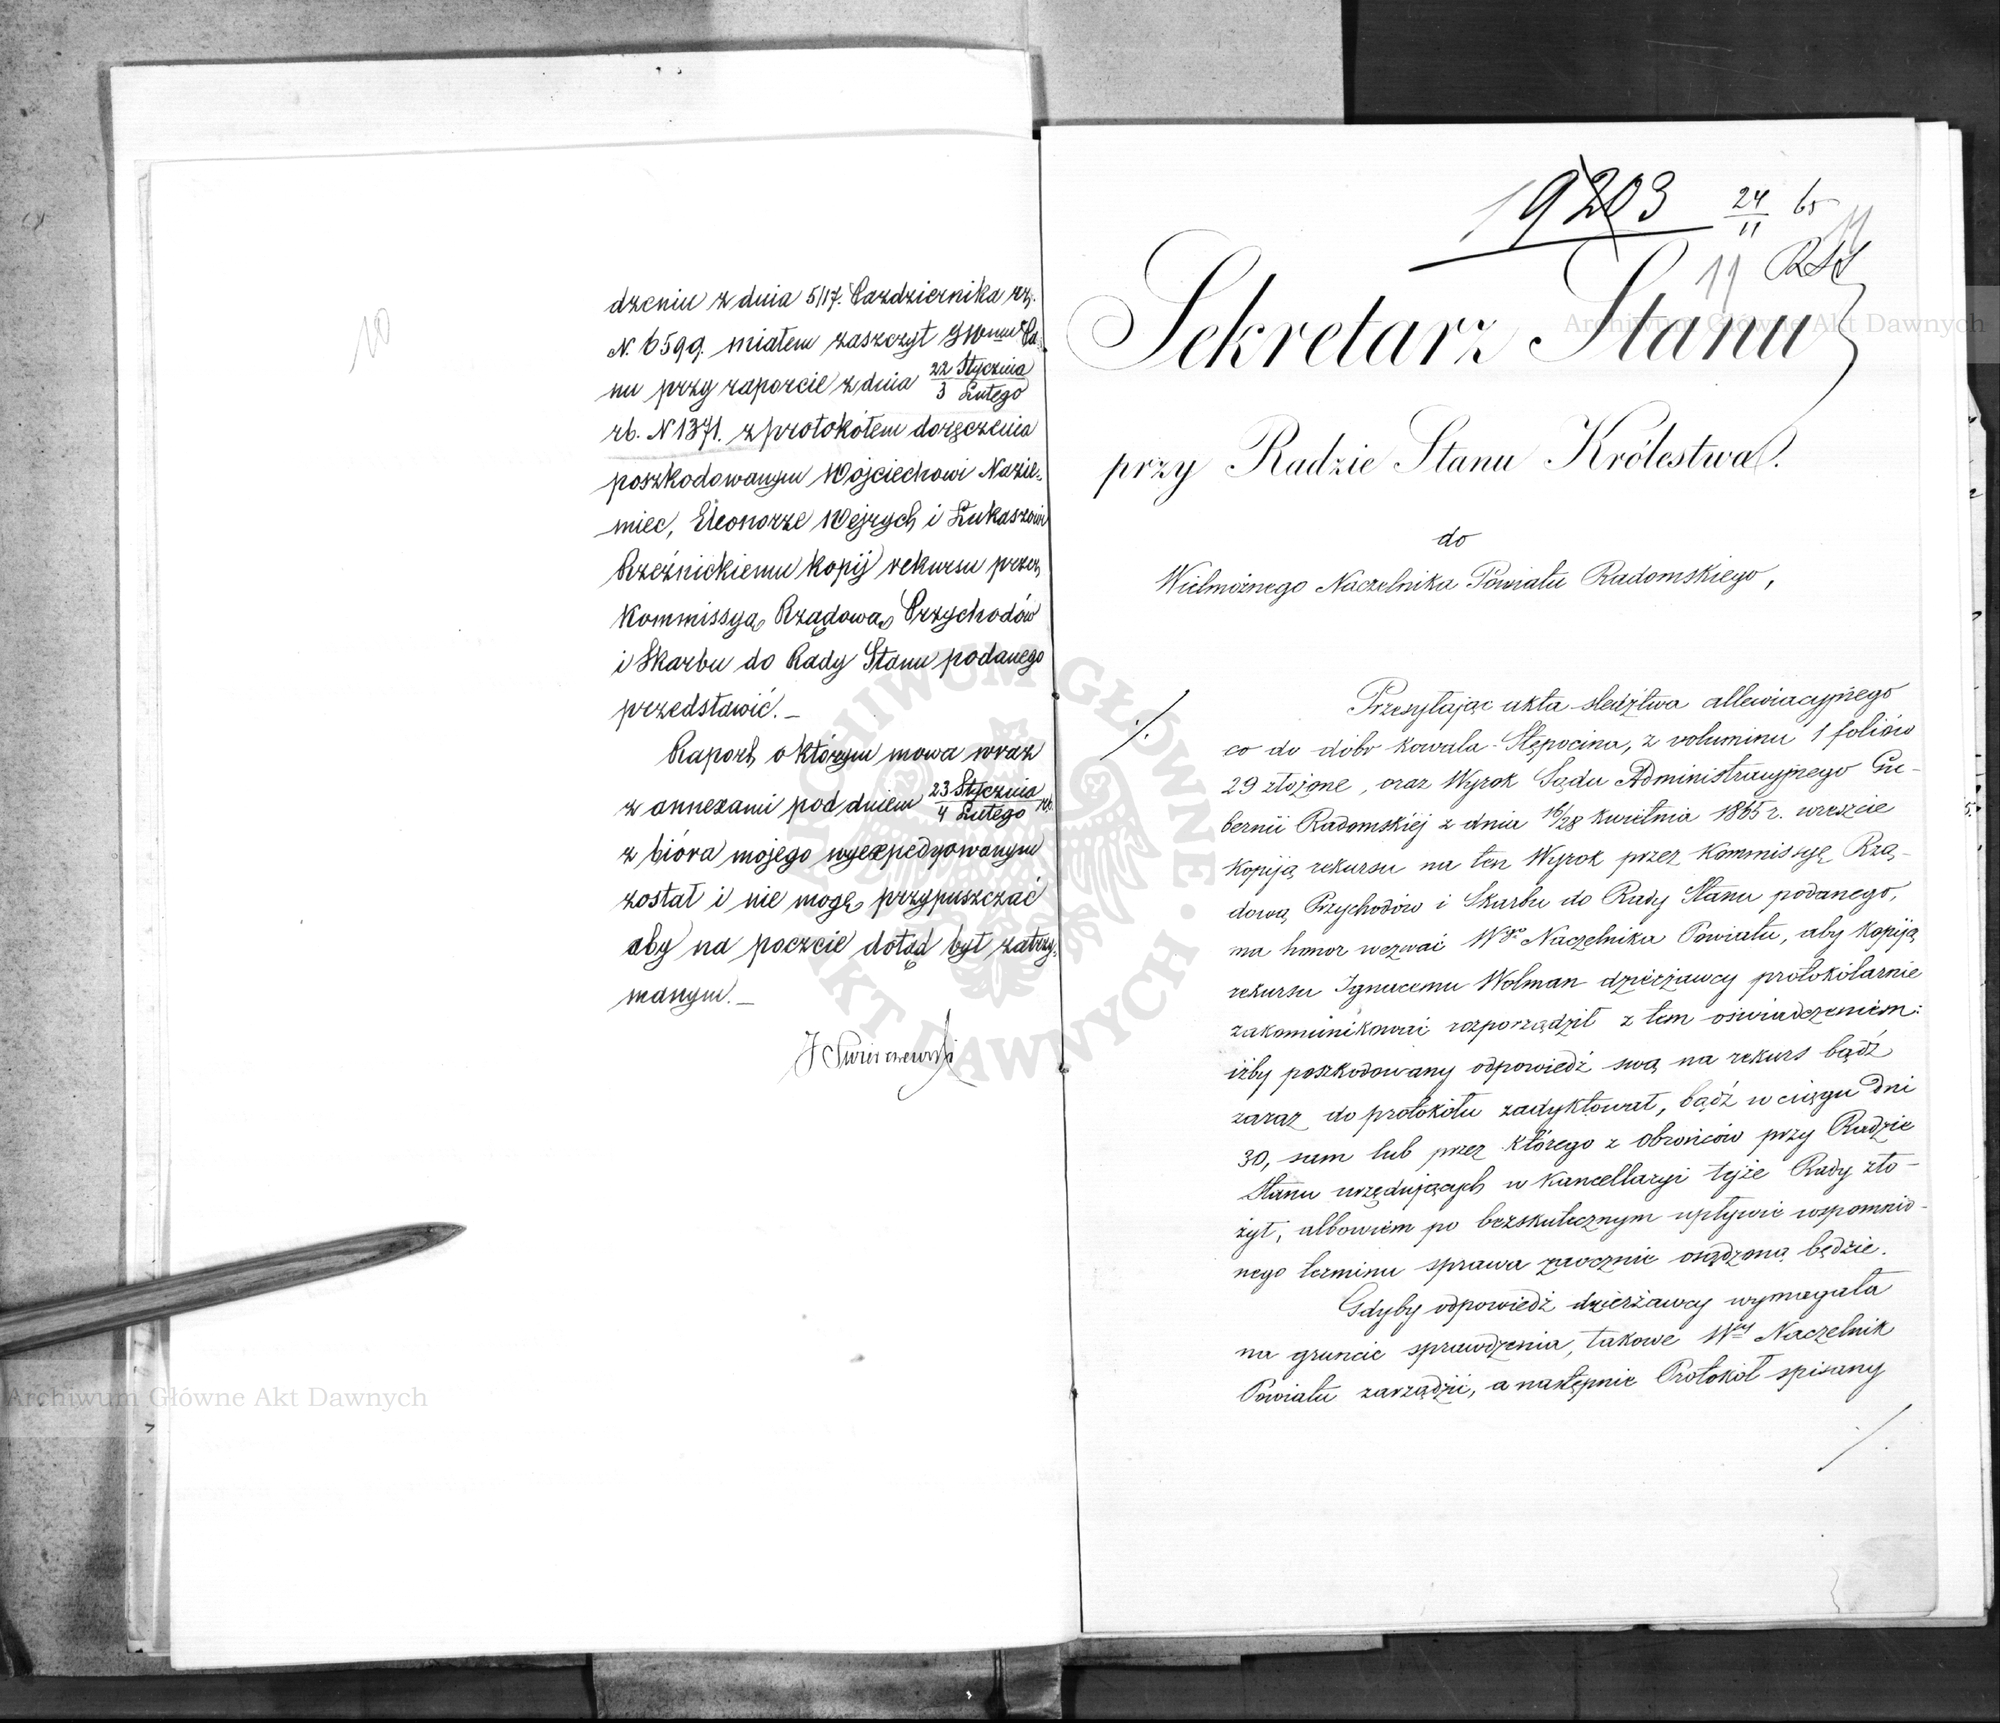 10
dzeniu z dnia 5/17. Października rz.
N. 6599. miałem zaszczyt JWmu Pa-
nu przy raporcie z dnia 22 Stycznia / 3 Lutego
rb. N 1371. z protokółem doręczenia
poszkodowanym Wojciechowi Nazie-
miec, Eleonorze Wejrych i Łukaszowi
Rzeźnickiemu kopij rekursu przez
Kommissyą Rządową Przychodów
i Skarbu do Rady Stanu podanego
przedstawić. —
Raport, o którym mowa wraz
z annexami pod dniem 23 Stycznia / 4 Lutego rb.
z bióra mojego wyexpedyowanym
został i nie mogę przypuszczać
aby na poczcie dotąd był zatrzy-
manym. —
19203 24/11 65
11
Sekretarz Stanu
przy Radzie Stanu Królestwa.
do
Wielmożnego Naczelnika Powiatu Radomskiego,
Przesyłając akta śledztwa allewiacyjnego
co do dóbr Kowala-Stępocina, z voluminu 1 foliów
29 złożone, oraz Wyrok Sądu Administracyjnego Gu-
bernii Radomskiéj z dnia 16/28 Kwietnia 1865 r. wreszcie
Kopiją rekursu na ten Wyrok przez Kommissyę Rzą-
dową Przychodów i Skarbu do Rady Stanu podanego,
ma honor wezwać Wgo Naczelnika Powiatu, aby Kopiją
rekursu Ignacemu Wolman dzierżawcy protokólarnie
zakomunikować rozporządził z tem oświadczeniem:
iżby poszkodowany odpowiedź swą na rekurs bądź
zaraz do protokółu zadyktował, bądź w ciągu dni
30, sam lub przez którego z obrońców przy Radzie
Stanu urzędujących w Kancellaryi tejże Rady zło-
żył, albowiem po bezskutecznym upływie wspomnio-
nego terminu sprawa zaocznie osądzoną będzie.
Gdyby odpowiedź dzierżawcy wymagała
na gruncie sprawdzenia, takowe Wny Naczelnik
Powiatu zarządzi, a następnie Protokół spisany
Archiwum Główne Akt Dawnych
Archiwum Główne Akt Dawnych
ARCHIWUM GŁÓWNE AKT DAWNYCH